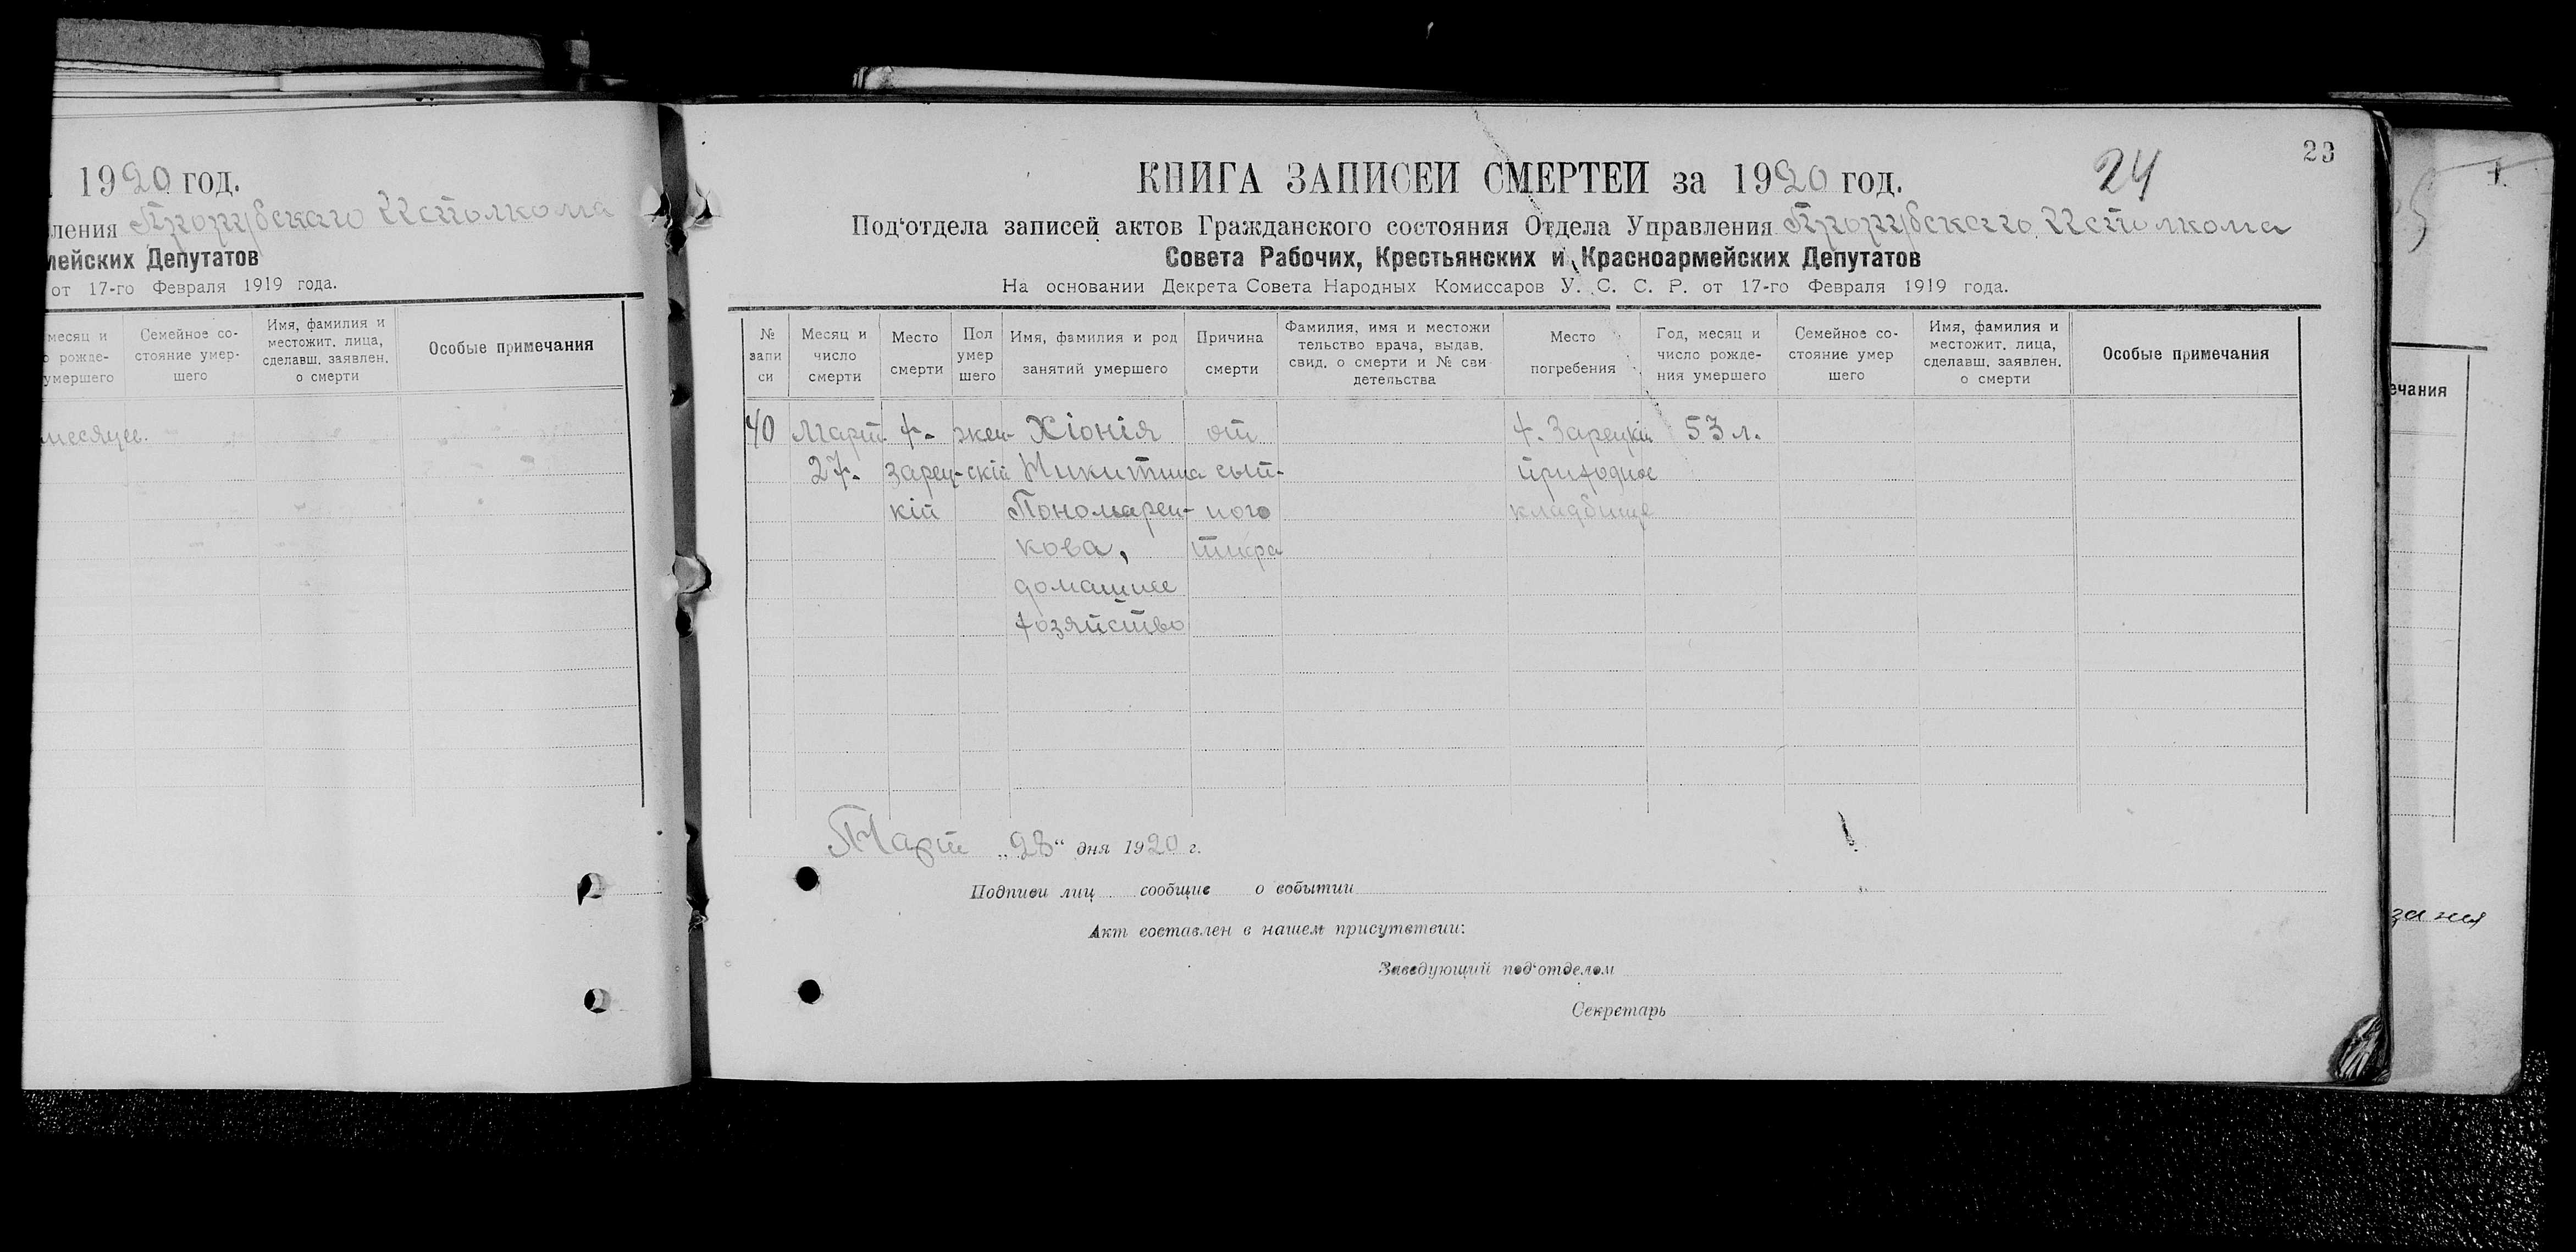 1920 год.
ления Исполкома
мейских Депутатов
от 17-го Февраля 1919 года.
месяц и
рожде-
умершего
Семейное со-
стояние умер-
шего
Имя, фамилия и
местожит. лица,
сделавш. заявлен.
о смерти
Особые примечания
месяцев.
23
24
КНИГА ЗАПИСЕЙ СМЕРТЕЙ за 1920 год.
Под'отдела записей актов Гражданского состояния Отдела Управления Исполкома
Совета Рабочих, Крестьянских и Красноармейских Депутатов
На основании Декрета Совета Народных Комиссаров У. С. С. Р. от 17-го Февраля 1919 года.
№
запи
си
Месяц и
число
смерти
Место
смерти
Пол
умер
шего
Имя, фамилия и род
занятий умершего
Причина
смерти
Фамилия, имя и местожи
тельство врача, выдав.
свид. о смерти и № сви
детельства
Место
погребения
Год, месяц и
число рожде-
ния умершего
Семейное со-
стояние умер
шего
Имя, фамилия и
местожит. лица,
сделавш. заявлен.
о смерти
Особые примечания
40
Март
27.
х.
Зарец-
кій
жен-
скій
Хіонія
Никитина
Пономарен-
кова,
домашнее
хозяйство
от
сып-
ного
тифа
х. Зарецкій
приходное
кладбище
53 л.
Март „28“ дня 1920 г.
Подписи лиц сообщив о событии
Акт составлен в нашем присутствии:
Заведующий под'отделом
Секретарь
ечания
зания